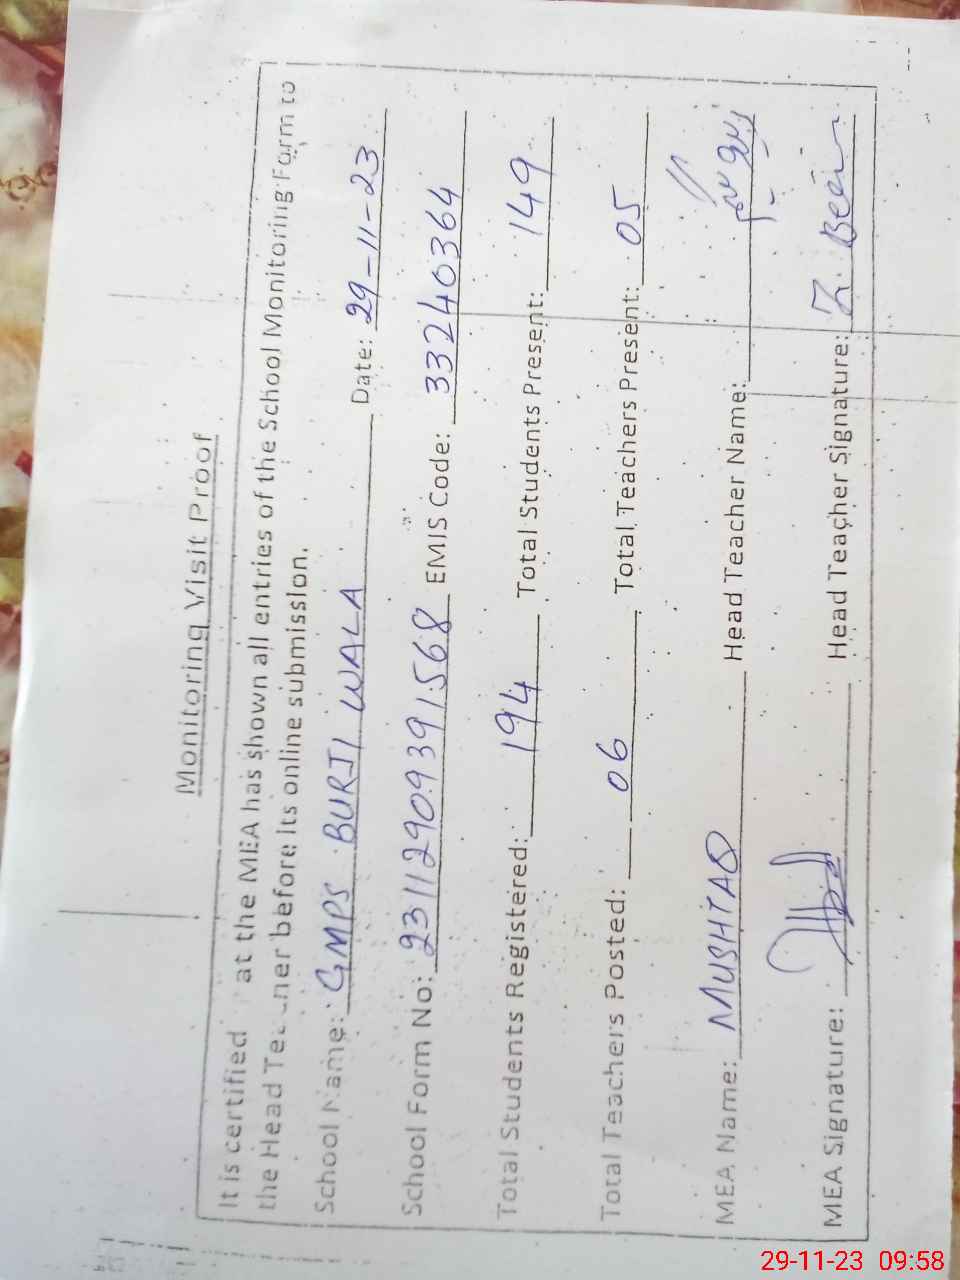 Monitoring Visit Proof
It is certified at the MEA has shown all entries of the School Monitoring Form to
the Head before its online submission.
School Name: GMPS BURJI WALA Date: 29-11-23
School Form No: 231129093915 68 EMIS Code: 33240364
Total Students Registered: 194 Total Students Present: 149
Total Teachers Posted: 06 Total Teachers Present: 05
MEA Name: MUSHTAQ Head Teacher Name:
MEA Signature: Head Teacher Signature: Z. Been
29-11-23 09:58